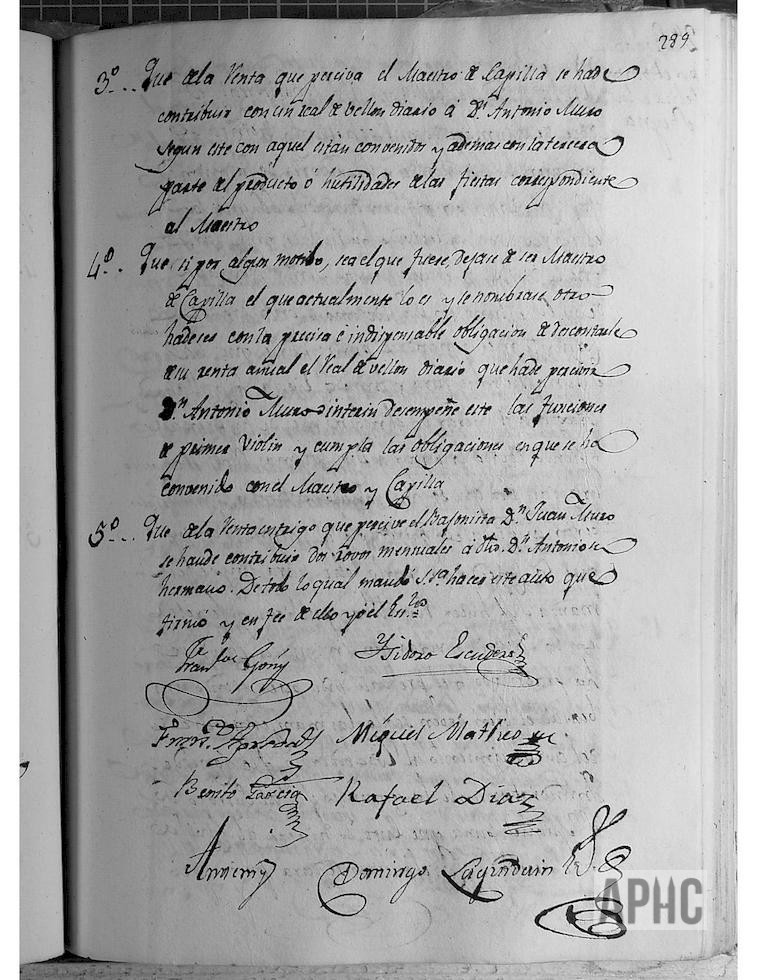 289
3º... Que de la Renta que perciva el Maestro de Capilla se hade
contribuir con un real de vellon diario á Dn Antonio Muro
segun este con aquel estan convenidos y ademas con la tercera
parte del producto ó hutilidades de las fiestas correspondiente
al Maestro
4º. Que si por algun motibo, sea el que fuere, dejase de ser Maestro
de Capilla el que actualmente lo es y se nombrase otro
hade ser con la precisa é indispensable obligacion de descontarle
de su renta anual el Real de vellon diario que hade percivir
Dn Antonio Muro interin desempeñe este las funciones
de primer violin y cumpla las obligaciones en que se ha
convenido con el Maestro y Capilla
5º... Que de la Renta en trigo que percive el Bajonista Dn Juan Muro
se han de contribuir dos rovos mensuales á dho. Dn Antonio su
hermano. De todo lo qual mandó S. Sa hacer este auto que
firmó y en fee de ello yo el Esno
Franco Goñy Ysidoro Escudero
Miguel Matheo
Benito Garcia Rafael Diaz
Antemy Domingo
APHC